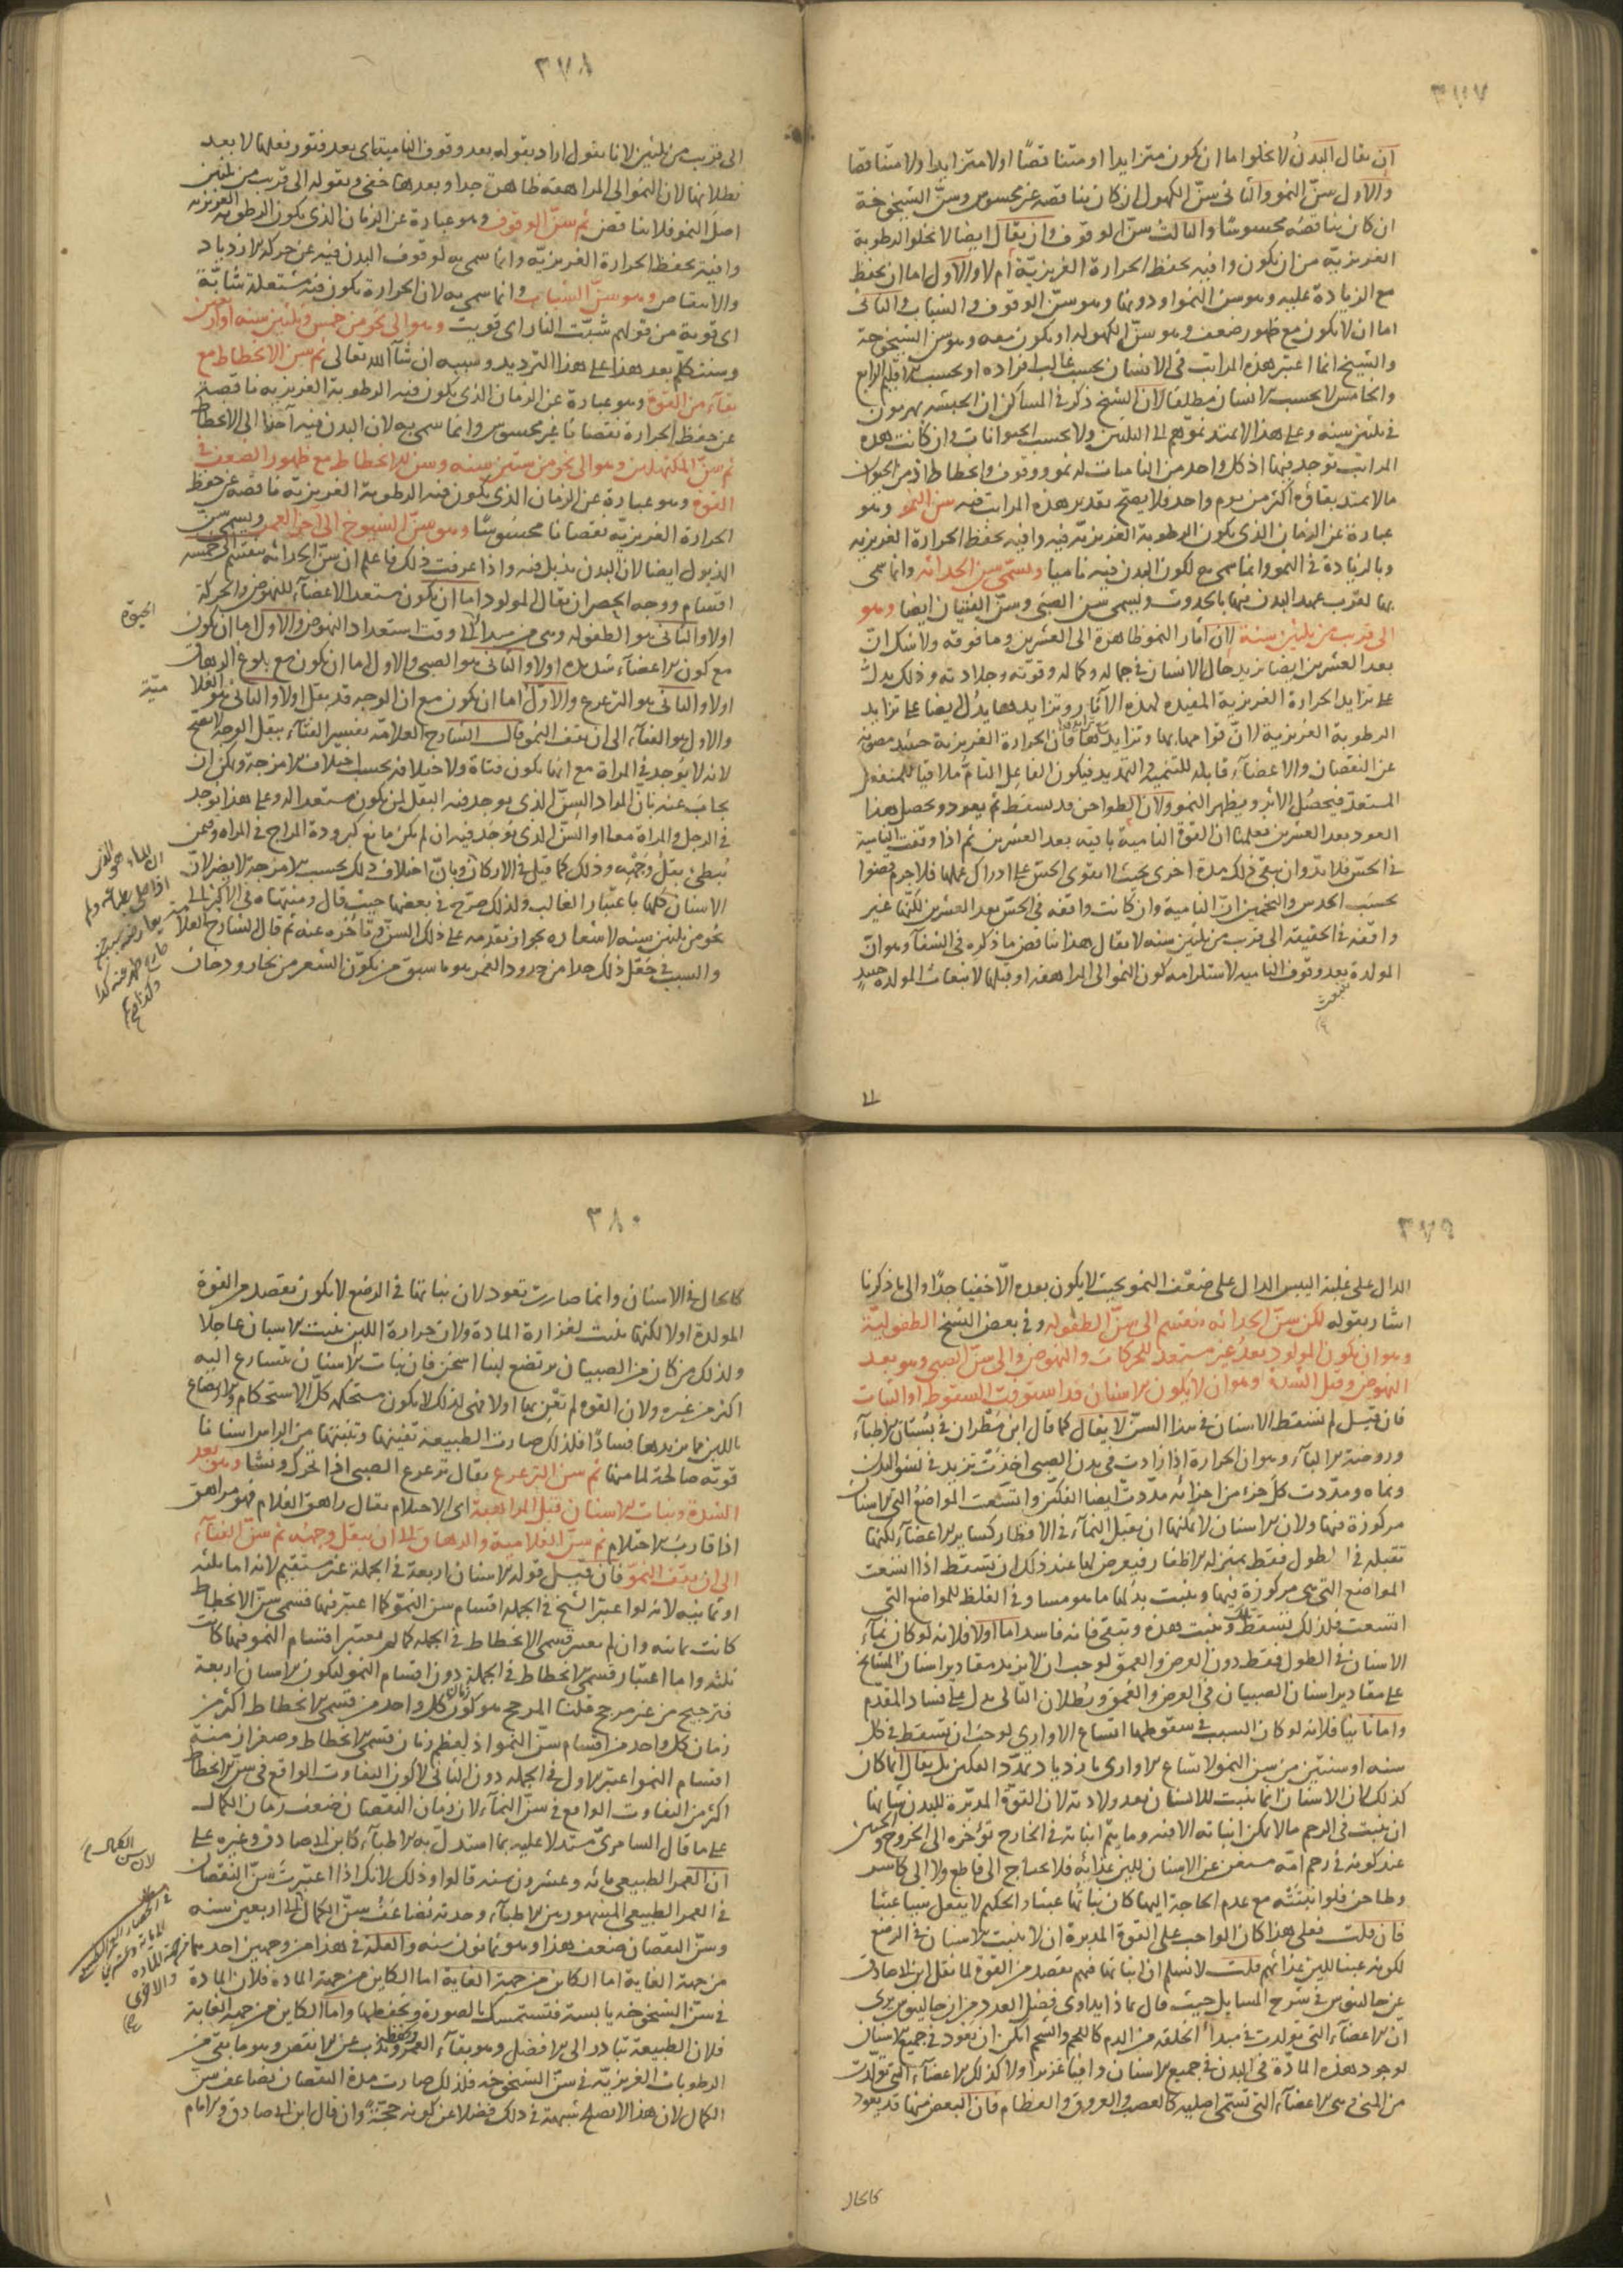 ٣٧٧
ان يقال البدن لا يخلوا اما ان يكون متزايدا او متناقصًا او لا متزايدا ولا متناقصا
والاول سن النمو والثانى سنّ الكهول ان كان تناقصه غير محسوس وسنّ الشيخوخة
ان كان تناقصه محسوسًا والثالث سنّ الوقوف وان يقال ايضا لا يخلوا الرطوبة
الغريزيّة من ان يكون وافيه بحفظ الحرارة الغريزيّة ام لا والاول اما ان يحفظ
مع الزيادة عليه وهو سن النمو او دونها وهو سنّ الوقوف والشباب والثانى
اما ان لا يكون مع ظهور ضعف وهو سنّ الكهوله او يكون معه وهو سن الشيخوخة
والشيخ انما اعتبر هذه المراتب فى الانسان بحسب غالب افراده او بحسب الاقليم الرابع
والخامس لا بحسب الانسان مطلقا لان الشيخ ذكر فى المساكن ان الحبشه يهرمون
فى ثلثين سنه وعلى هذا لا يمتد نموهم الى الثلثين ولا بحسب الحيوانات وان كانت هذه
المراتب توجد فيها اذ كل واحد من الناميات له نمو ووقوف وانحطاط اذ من الحيوان
مالا يمتد بقاؤه اكثر من يوم واحد فلا يصح تقدير هذه المراتب فيه سن النمو وهو
عبارة عن الزمان الذى يكون الرطوبة الغريزيّة فيه وافيه بحفظ الحرارة الغريزيه
وبالزيادة فى النمو وانما سمى به لكون البدن فيه ناميا ويسمى سن الحداثه وانما سمى
بها لقرب عهد البدن فيها بالحدوث ويسمى سن الصبى وسنّ الفتيان ايضا وهو
الى قريب من ثلثين سنة لان آثار النمو ظاهرة الى العشرين وما فوقه ولا شك ان
بعد العشرين ايضا يزيد حال الانسان فى جماله وكماله وقوته وجلادته وذلك يدل
على تزايد الحرارة الغريزية المفيده لهذه الآثار وتزايدها يدل ايضا على تزايد
الرطوبة الغريزية لان قوامها بها وتزايدها فان الحرارة الغريزية حينئذ مصونه
عن النقصان والاعضاء قابله للتنميه والتمديد فيكون الفاعل التام ملاقيا للمنفعل
المستعد فيحصل الاثر ويظهر النمو ولان الطواحن قد تسقط ثم يعود ويحصل هذا
العود بعد العشرين فعلمنا ان القوة النامية باقيه بعد العشرين ثم اذا وقفت النامية
فى الحسّ فلا بدّ وان يبقى ذلك مدة اخرى بحيث لا تقوى الحسّ على ادراك عملها فلا جرم قضوا
بحسب الحدس والتخمين انّ النامية وان كانت واقفه فى الحسّ بعد العشرين لكنّها غير
واقفه فى الحقيقه الى قريب من ثلثين سنه لا يقال هذا يناقض ما ذكره فى الشفاء وهو ان
المولدة بعد وقوف الناميه لاستلزامه كون النمو الى المراهقه او قبلها لانبعاث المولده حينئذ
تنبعث
٣٧٨
الى قريب من ثلثين لانا نقول اراد بقوله بعد وقوف الناميه اى بعد فتور فعلها لا بعد
بطلانها لان النمو الى المراهقه ظاهرة جدا وبعدها خفى وبقوله الى قريب من ثلثين
اصل النمو فلا يناقض ثم سنّ الوقوف وهو عبارة عن الزمان الذى يكون الرطوبه الغريزيه
وافية بحفظ الحرارة الغريزيّة وانما سمى به لوقوف البدن فيه عن حركة الازدياد
والانتقاص وهو سنّ الشباب وانما سمى به لان الحرارة يكون فيه مشتعلة شابّة
اى قوية من قولهم شبّت النار اى قويت وهو الى نحو من خمس وثلثين سنه او اربعين
وسنتكلم بعد هذا على هذا الترديد وسببه ان شآ الله تعالى ثم سن الانحطاط مع
بقاء من القوة وهو عبارة عن الزمان الذى يكون فيه الرطوبة الغريزيه ناقصة
عن حفظ الحرارة نقصانا غير محسوس وانما سمى به لان البدن فيه آخذ الى الانحطاط
ثم سنّ المكتهلين وهو الى نحو من ستين سنه وسن الانحطاط مع ظهور الضعف فى
القوة وهو عبارة عن الزمان الذى يكون فيه الرطوبة الغريزيّة ناقصه عن حفظ
الحرارة الغريزيّه نقصانا محسوسًا وهو سنّ الشيوخ الى آخر العمر ويسمى سن
الذبول ايضا لان البدن يذبل فيه واذا عرفت ذلك فاعلم ان سن الحداثه ينقسم الى خمسه
اقسام ووجه الحصر ان يقال المولود اما ان يكون مستعد الاعضاء للنهوض والحركة
اولا والثانى هو الطفوله وهى من مبدا الى وقت استعداد النهوض والاول اما ان يكون
مع كون الاعضاء شديده اولا والثانى هو الصبى والاول اما ان يكون مع بلوغ الرهاق
اولا والثانى هو الترعرع والاوّل اما ان يكون مع ان الوجه قد بقل اولا والثانى هو الغلا
مية
والاول هو الفتاء الى ان يقف النمو قال الشارح العلامة تفسير الفتاء ببقل الوجه لا يصح
لانه لا يوجد فى المراة مع انها يكون فتاة ولاختلافه بحسب اختلاف الامزجة ويمكن ان
يجاب عنه بان المراد السن الذى يوجد فيه البقل لمن يكون مستعدا له وعلى هذا يوجد
فى الرجل والمراة معا او السن الذى يوجد فيه ان لم يكن مانع كبرودة المزاج فى المراه وفيمن
يبطئ بقل وجهه وذلك كما قيل فى الاركان وبان اختلاف ذلك بحسب الامزجة لا يضر لان
الاسنان كلها باعتبار الغالب ولذلك صرح فى بعضها حيث قال ومنتهاه فى الاكثر الى
نحو من ثلثين سنه لاشعاره بجواز تقدمه على ذلك السن وتأخره عنه ثم قال الشارح العلا
والسبب فى جعل ذلك حدا من حدود العمر هو ما سبق من تكون الشعر من بخار ودخان
٣٧٩
الدال على غلبة اليبس الدال على ضعف النمو بحيث لا يكون بعده الّا خفيا جدًا والى ما ذكرنا
اشار بقوله لكن سنّ الحداثه ينقسم الى سنّ الطفوله وفى بعض النسخ الطفوليّة
وهو ان يكون المولود بعد غير مستعد للحركات والنهوض والى سنّ الصبى وهو بعد
النهوض وقبل الشدة وهو ان لا يكون الاسنان قد استوفت السقوط والنبات
فان قيل لم تسقط الاسنان فى هذا السن لا يقال كما قال ابن مطران فى بستان الاطباء
وروضة الالباء وهو ان الحرارة اذا زادت فى بدن الصبى اخذت تزيد فى نشو البدن
ونماه ومدّدت كل جزء من اجزائه مدّدت ايضا الفكين واتسعت المواضع التى الاسنان
مركوزة فيها ولان الاسنان لا يمكنها ان يقبل النماء فى الاقطار كساير الاعضاء لكنها
تقبله فى الطول فقط بمنزلة الاظفار فيعرض لها عند ذلك ان تسقط اذا اتسعت
المواضع التى هى مركوزة فيها وينبت بدلها ما هو مساو فى الغلظ للمواضع التى
اتسعت فلذلك تسقط تلك وينبت هذه وتبقى فانه فاسد اما اولا فلانه لو كان نماء
الاسنان فى الطول فقط دون العرض والعمق لوجب ان لا يزيد مقادير اسنان المشايخ
على مقادير اسنان الصبيان فى العرض والعمق وبطلان التالى يدل على فساد المقدم
واما ثانيا فلانه لو كان السبب فى سقوطها اتساع الاوارى لوجب ان تسقط فى كل
سنه او سنتين من سن النمو لاتساع الاوارى بازدياد تمدّد الفكين بل يقال انما كان
كذلك لان الاسنان انما ينبت للانسان بعد ولادته لان القوة المدبّرة للبدن شانها
ان ينبت فى الرحم مالا يمكن انباته الا فيه وما يتم انباته فى الخارج تؤخره الى الخروج والجنين
عند كونه فى رحم امّه مستغن عن الاسنان للين غذائه فلا يحتاج الى قاطع ولا الى كاسر
وطاحن فلو انبتته مع عدم الحاجة اليها كان نباتها عبثا والحكيم لا يفعل شيئا عبثا
فان قلت فعلى هذا كان الواجب على القوة المدبرة ان لا ينبت الاسنان فى الرضيع
لكونه عبثا للين غذائهم قلت لا نسلم ان نباتها فيهم بقصد من القوة لما نقل ابن ابى صادق
عن جالينوس فى شرح المسايل حيث قال بماذا يداوى فضل العدد من ان جالينوس يرى
ان الاعضاء التى تولدت فى مبدأ الخلقه من الدم كاللحم والشحم امكن ان يعود فى جميع الاسنان
لوجود هذه المادّة فى البدن فى جميع الاسنان وافيا غزيرا ولا كذلك الاعضاء التى تولدت
من المنى وهى الاعضاء التى تسمى اصلية كالعصب والعروق والعظام فان البعض منها قد يعود
كالحال
٣٨٠
كالحال فى الاسنان وانما صارت تعود لان نباتها فى الرضيع لا يكون بقصد من القوة
المولدة اولا لكنها ينبت لغزارة المادة ولان حرارة اللبن ينبت الاسنان عاجلًا
ولذلك من كان من الصبيان يرتضع لبنا اسخن فان نبات الاسنان يتسارع اليه
اكثر من غيره ولان القوة لم تعن بها اولا فهى لذلك لا يكون مستحكمه كل الاستحكام والارضاع
باللبن مما يزيدها فسادًا فلذلك صارت الطبيعة تنفيها وتنبتها من الراس اسنانا
قويّه صالحة لما منها ثم سن الترعرع يقال ترعرع الصبى اذا تحرك ونشا وهو بعد
الشدة ونبات الاسنان قبل المراهقة اى الاحتلام يقال راهق الغلام فهو مراهق
اذا قارب الاحتلام ثم سنّ الغلامية والرهاق الى ان يبقل وجهه ثم سنّ الفتاء
الى ان يقف النمو فان قيل قوله الاسنان اربعة فى الجملة غير مستقيم لانه اما ثلثه
او ثمانيه لانه لو اعتبر الشيخ فى الجملة اقسام سن النمو كما اعتبر فيها قسمى سن الانحطاط
كانت ثمانيه وان لم يعتبر قسمى الانحطاط فى الجمله كما لم يعتبر اقسام النمو فيها كانت
ثلثه واما اعتبار قسمى الانحطاط فى الجملة دون اقسام النمو ليكون الاسنان اربعة
فترجيح من غير مرجح قلنا المرجح هو كون زمان كل واحد من قسمى الانحطاط اكثر من
زمان كل واحد من اقسام سنّ النمو اذ لعظم زمان قسمى الانحطاط وصغر ازمنة
اقسام النمو اعتبر الاول فى الجمله دون الثانى لا لكون التفاوت الواقع فى سن الانحطاط
اكثر من التفاوت الواقع فى سنّ النماء لان زمان النقصان ضعف زمان الكمال
على ما قال السامرىّ مستدلا عليه بما استدل به الاطباء كابن ابى صادق وغيره على
ان العمر الطبيعى مائه وعشرون سنه قالوا وذلك لانك اذا اعتبرت سنّ النقصان
فى العمر الطبيعى المشهور بين الاطباء وجدته تضاعف سنّ الكمال الى اربعين سنه
وسنّ النقصان ضعف هذا وهو ثمانون سنه والعلة فى هذا من وجهين احدهما من جهة المادة
من جهة الغاية اما الكاين من جهة الغاية اما الكاين من جهة المادة فلان المادة
فى سنّ الشيخوخه يابسة فتستمسك بالصورة وتحفظها واما الكاين من جهة الغاية
فلان الطبيعة تبادر الى الافضل وهو بقاء العمر وتذب عن الانقص وهو ما يبقى من
الرطوبات الغريزيّة فى سنّ الشيخوخه فلذلك صارت مدة النقصان تضاعف سن
الكمال لان هذا لا يصلح شبهة فى ذلك فضلا عن كونه حجّة وان قال ابن ابى صادق والامام